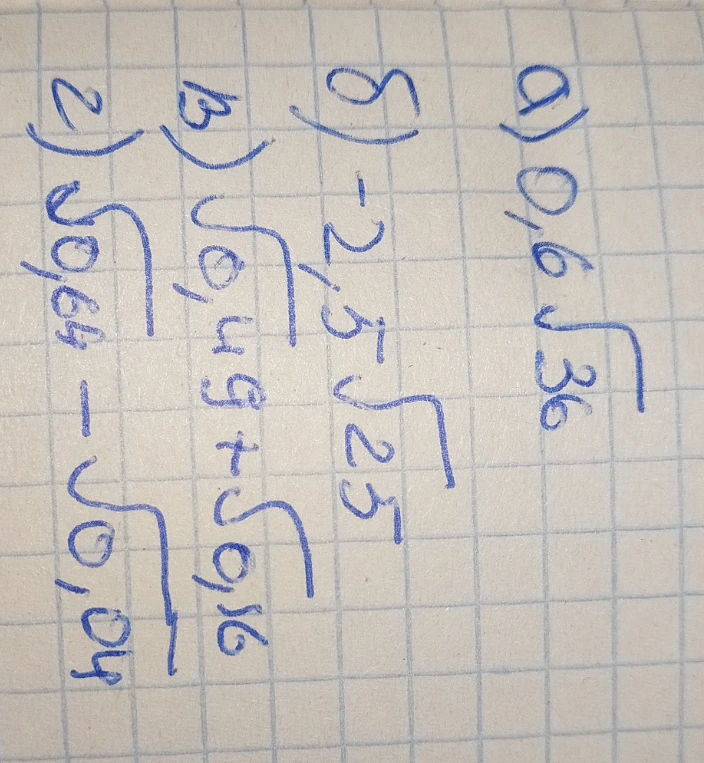 а) 0,6√36
б) -2,5√25
в) √0,49 + √0,16
г) √0,64 - √0,04